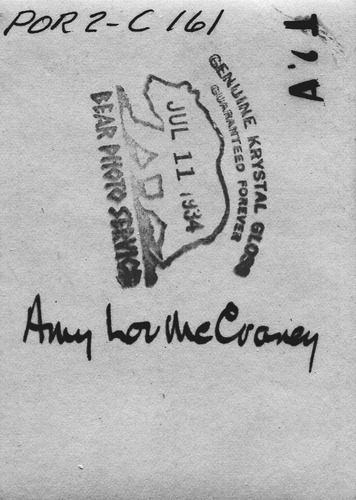 POR 2-C 161
GENUINE KRYSTAL GLOSS
GUARANTEED FOREVER
JUL 11 1934
BEAR PHOTO SERVICE
Amy Lou McCraney